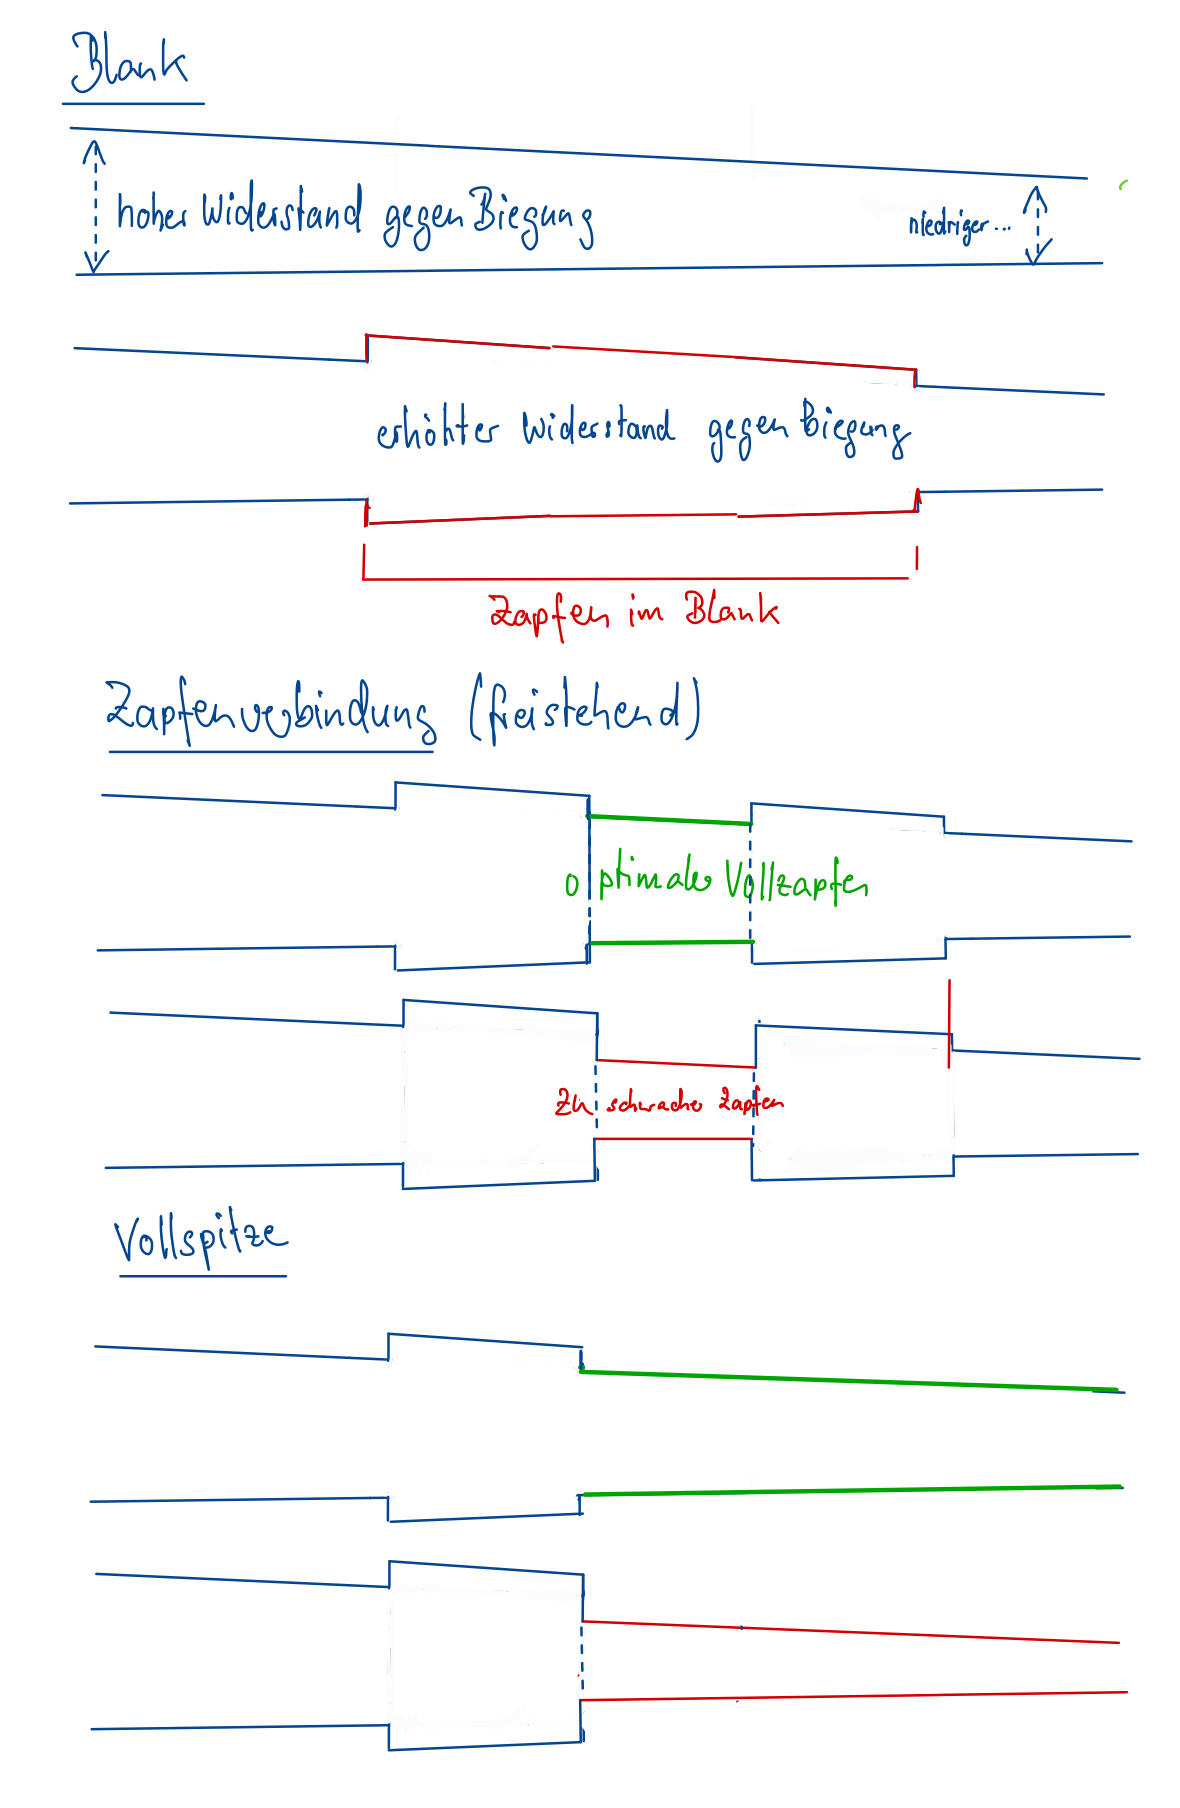 Blank
hoher Widerstand gegen Biegung
niedriger...
erhöhter Widerstand gegen Biegung
Zapfen im Blank
Zapfenverbindung (freistehend)
optimaler Vollzapfen
Zu schwacher Zapfen
Vollspitze